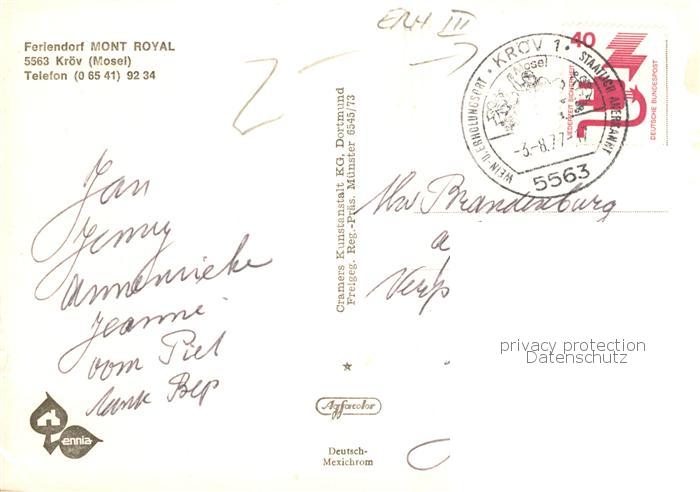 ENH III
Feriendorf MONT ROYAL
5563 Kröv (Mosel)
Telefon (0 65 41) 92 34
40
JEDERZEIT SICHERHEIT
DEUTSCHE BUNDESPOST
KRÖV 1
(Mosel)
STAATLICH ANERKANNT
WEIN-U. ERHOLUNGSORT
-3.-8.77-17
5563
Cramers Kunstanstalt KG, Dortmund
Freigeg. Reg.-Präs. Münster 6545/73
Jan
Jenny
Annemieke
Jeanne
oom Piet
tante Bep
Brandenburg
a
privacy protection
Datenschutz
ennia
Agfacolor
Deutsch-
Mexichrom